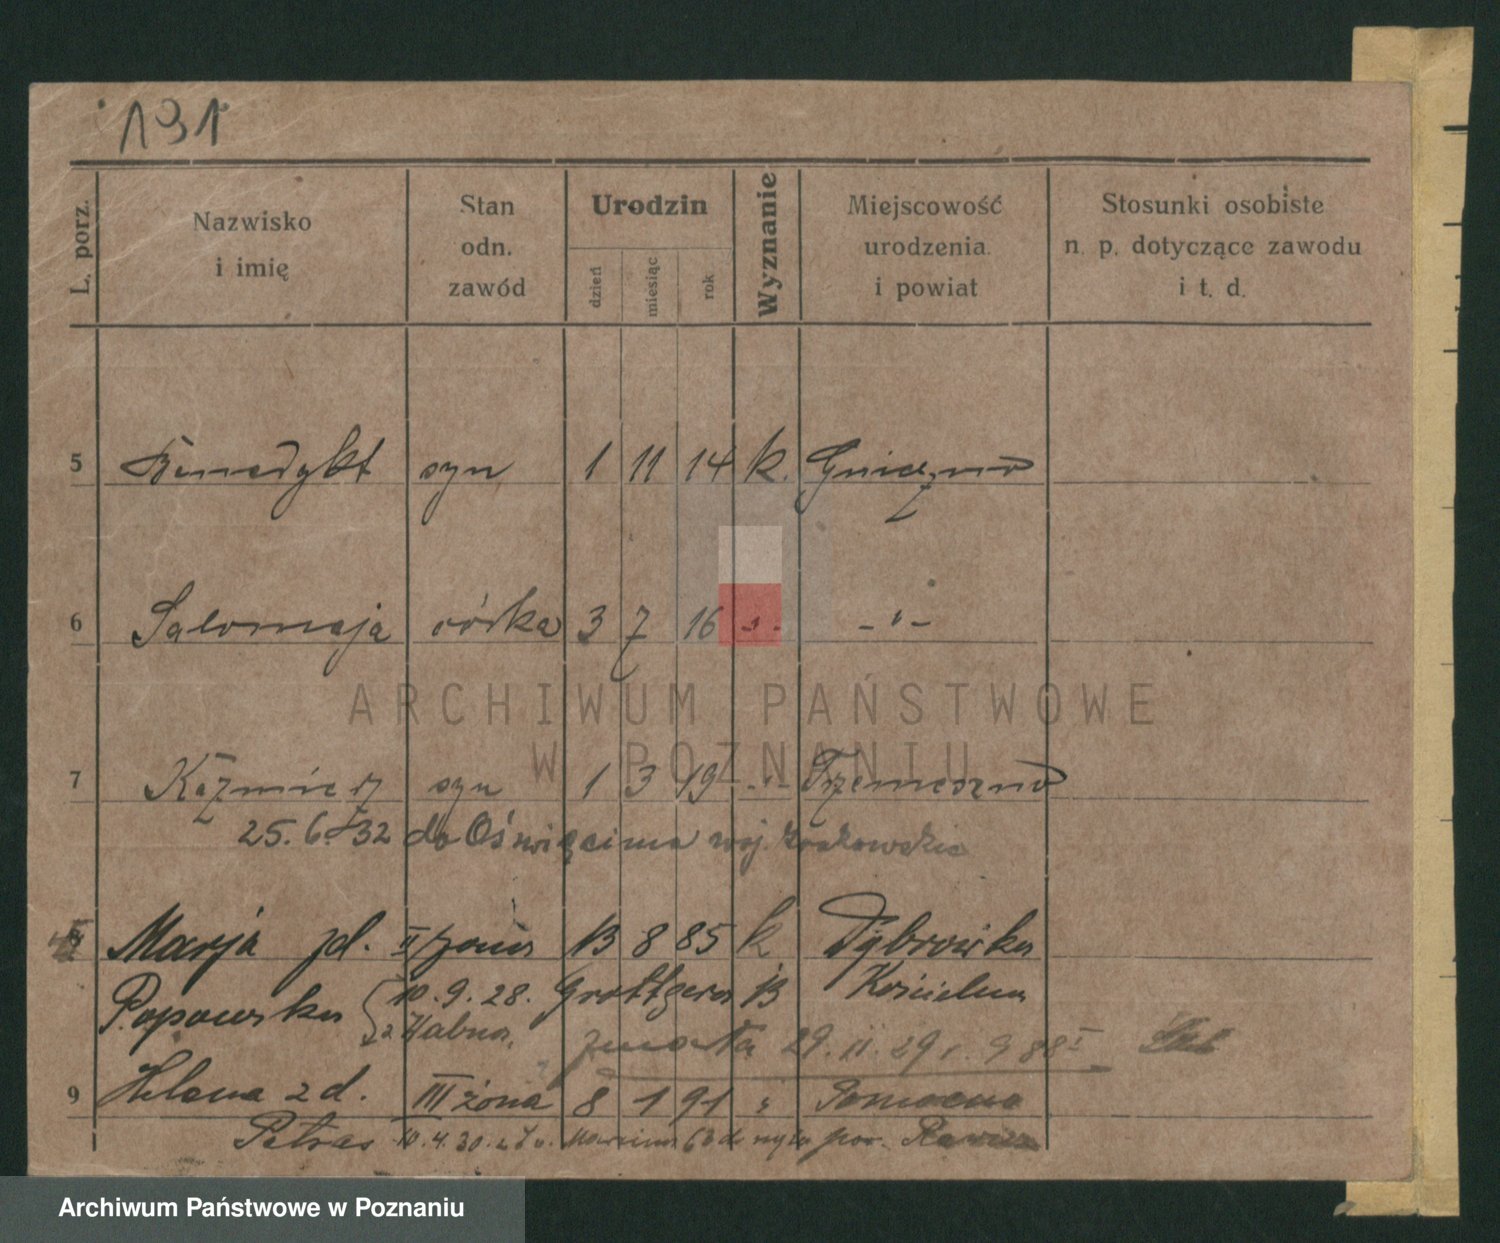 191
L. porz.
Nazwisko i imię
Stan odn. zawód
Urodzin
dzień
miesiąc
rok
Wyznanie
Miejscowość urodzenia i powiat
Stosunki osobiste n. p. dotyczące zawodu i t. d.
5 Benedykt syn 1 11 14 k. Gniezno
6 Salomeja córka 3 7 16 -"- -"-
ARCHIWUM PAŃSTWOWE
W POZNANIU
7 Kaźmierz syn 1 3 19 -"- Trzemeszno
25.6.32 do Oświęcima woj. krakowskie
Marja zd. II żona 13 8 85 k Dąbrówka
Popowska 10.9.28. Grottgera 13 Kościelna
z Habna. zmarła 29.11.29 r. 988
9 Helena z d. III żona 8 1 91 "
Petras 10.4.30. pow.
Archiwum Państwowe w Poznaniu